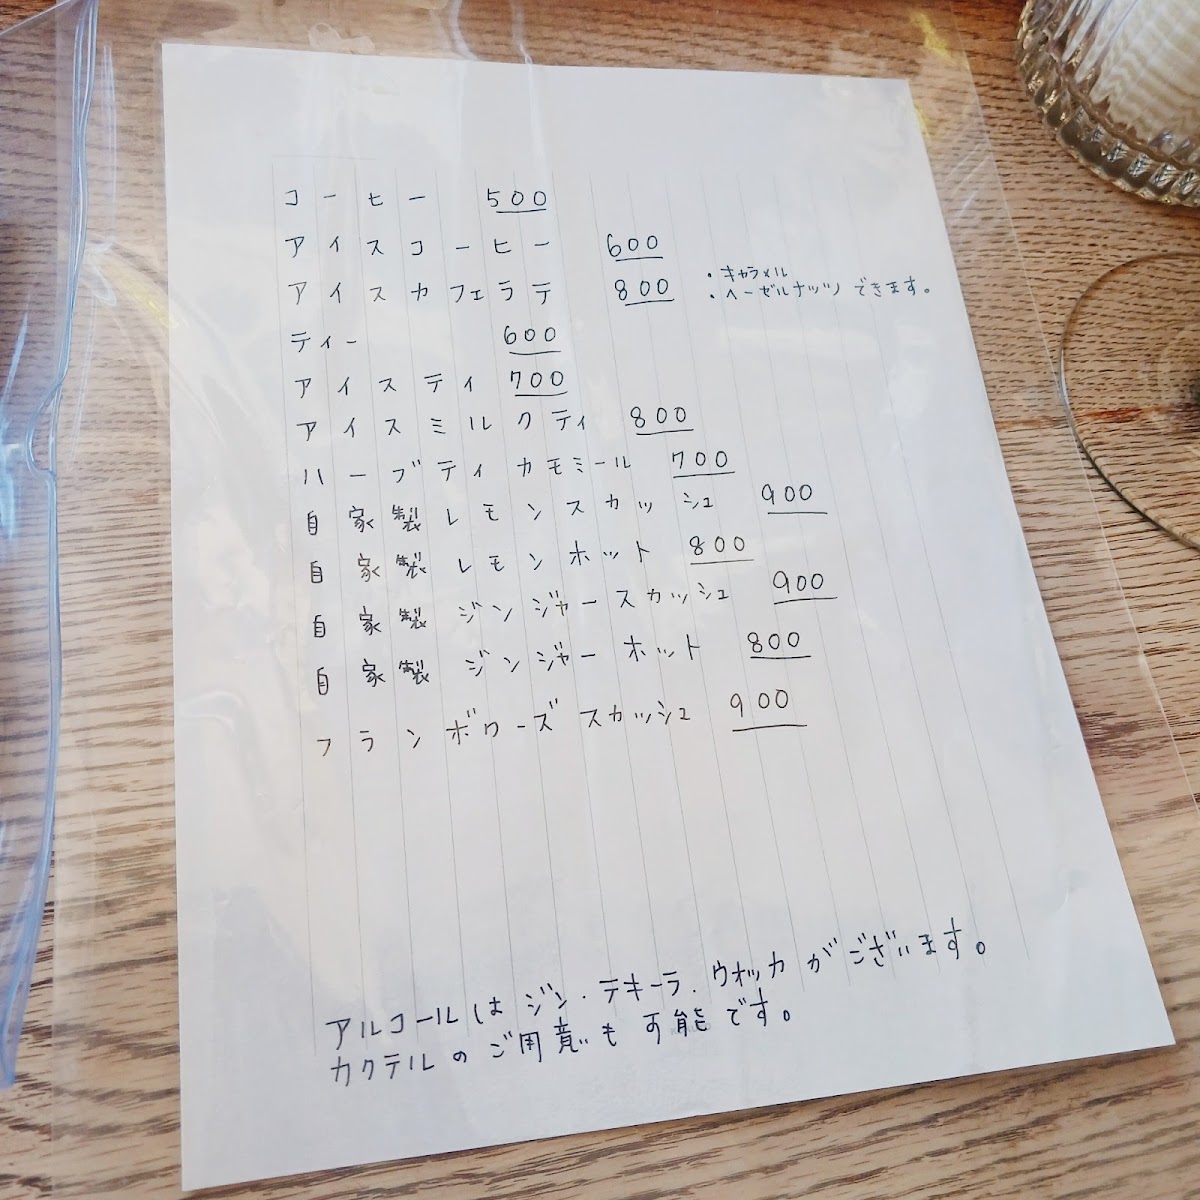 コーヒー 500
アイスコーヒー 600
アイスカフェラテ 800 ・キャラメル
・ヘーゼルナッツ できます。
ティー 600
アイスティ 700
アイスミルクティ 800
ハーブティ カモミール 700
自家製レモンスカッシュ 900
自家製レモンホット 800
自家製 ジンジャースカッシュ 900
自家製 ジンジャー ホット 800
フランボワーズ スカッシュ 900
アルコールは ジン・テキーラ・ウオッカ がございます。
カクテルのご用意も可能です。